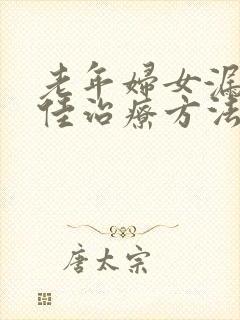 老年婦女漏
佳治療方法
唐太宗